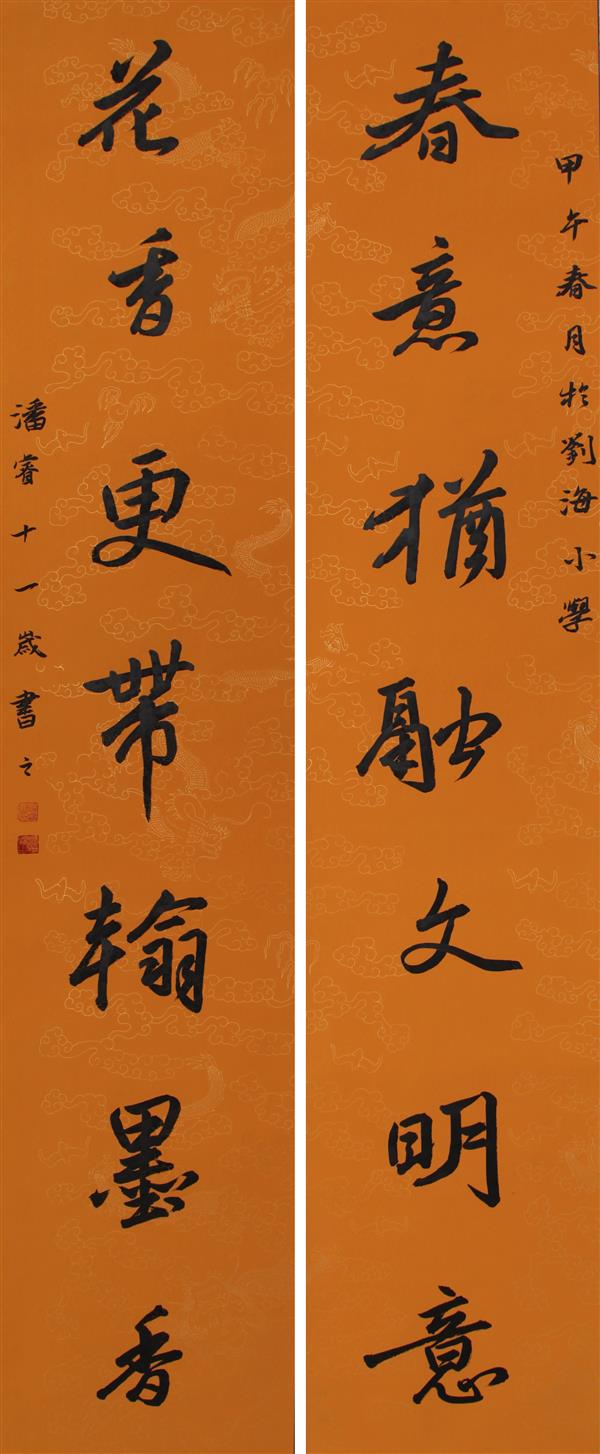 甲午春月於劉海小學
春意猶融文明意
花香更帶翰墨香
潘睿十一歲書之